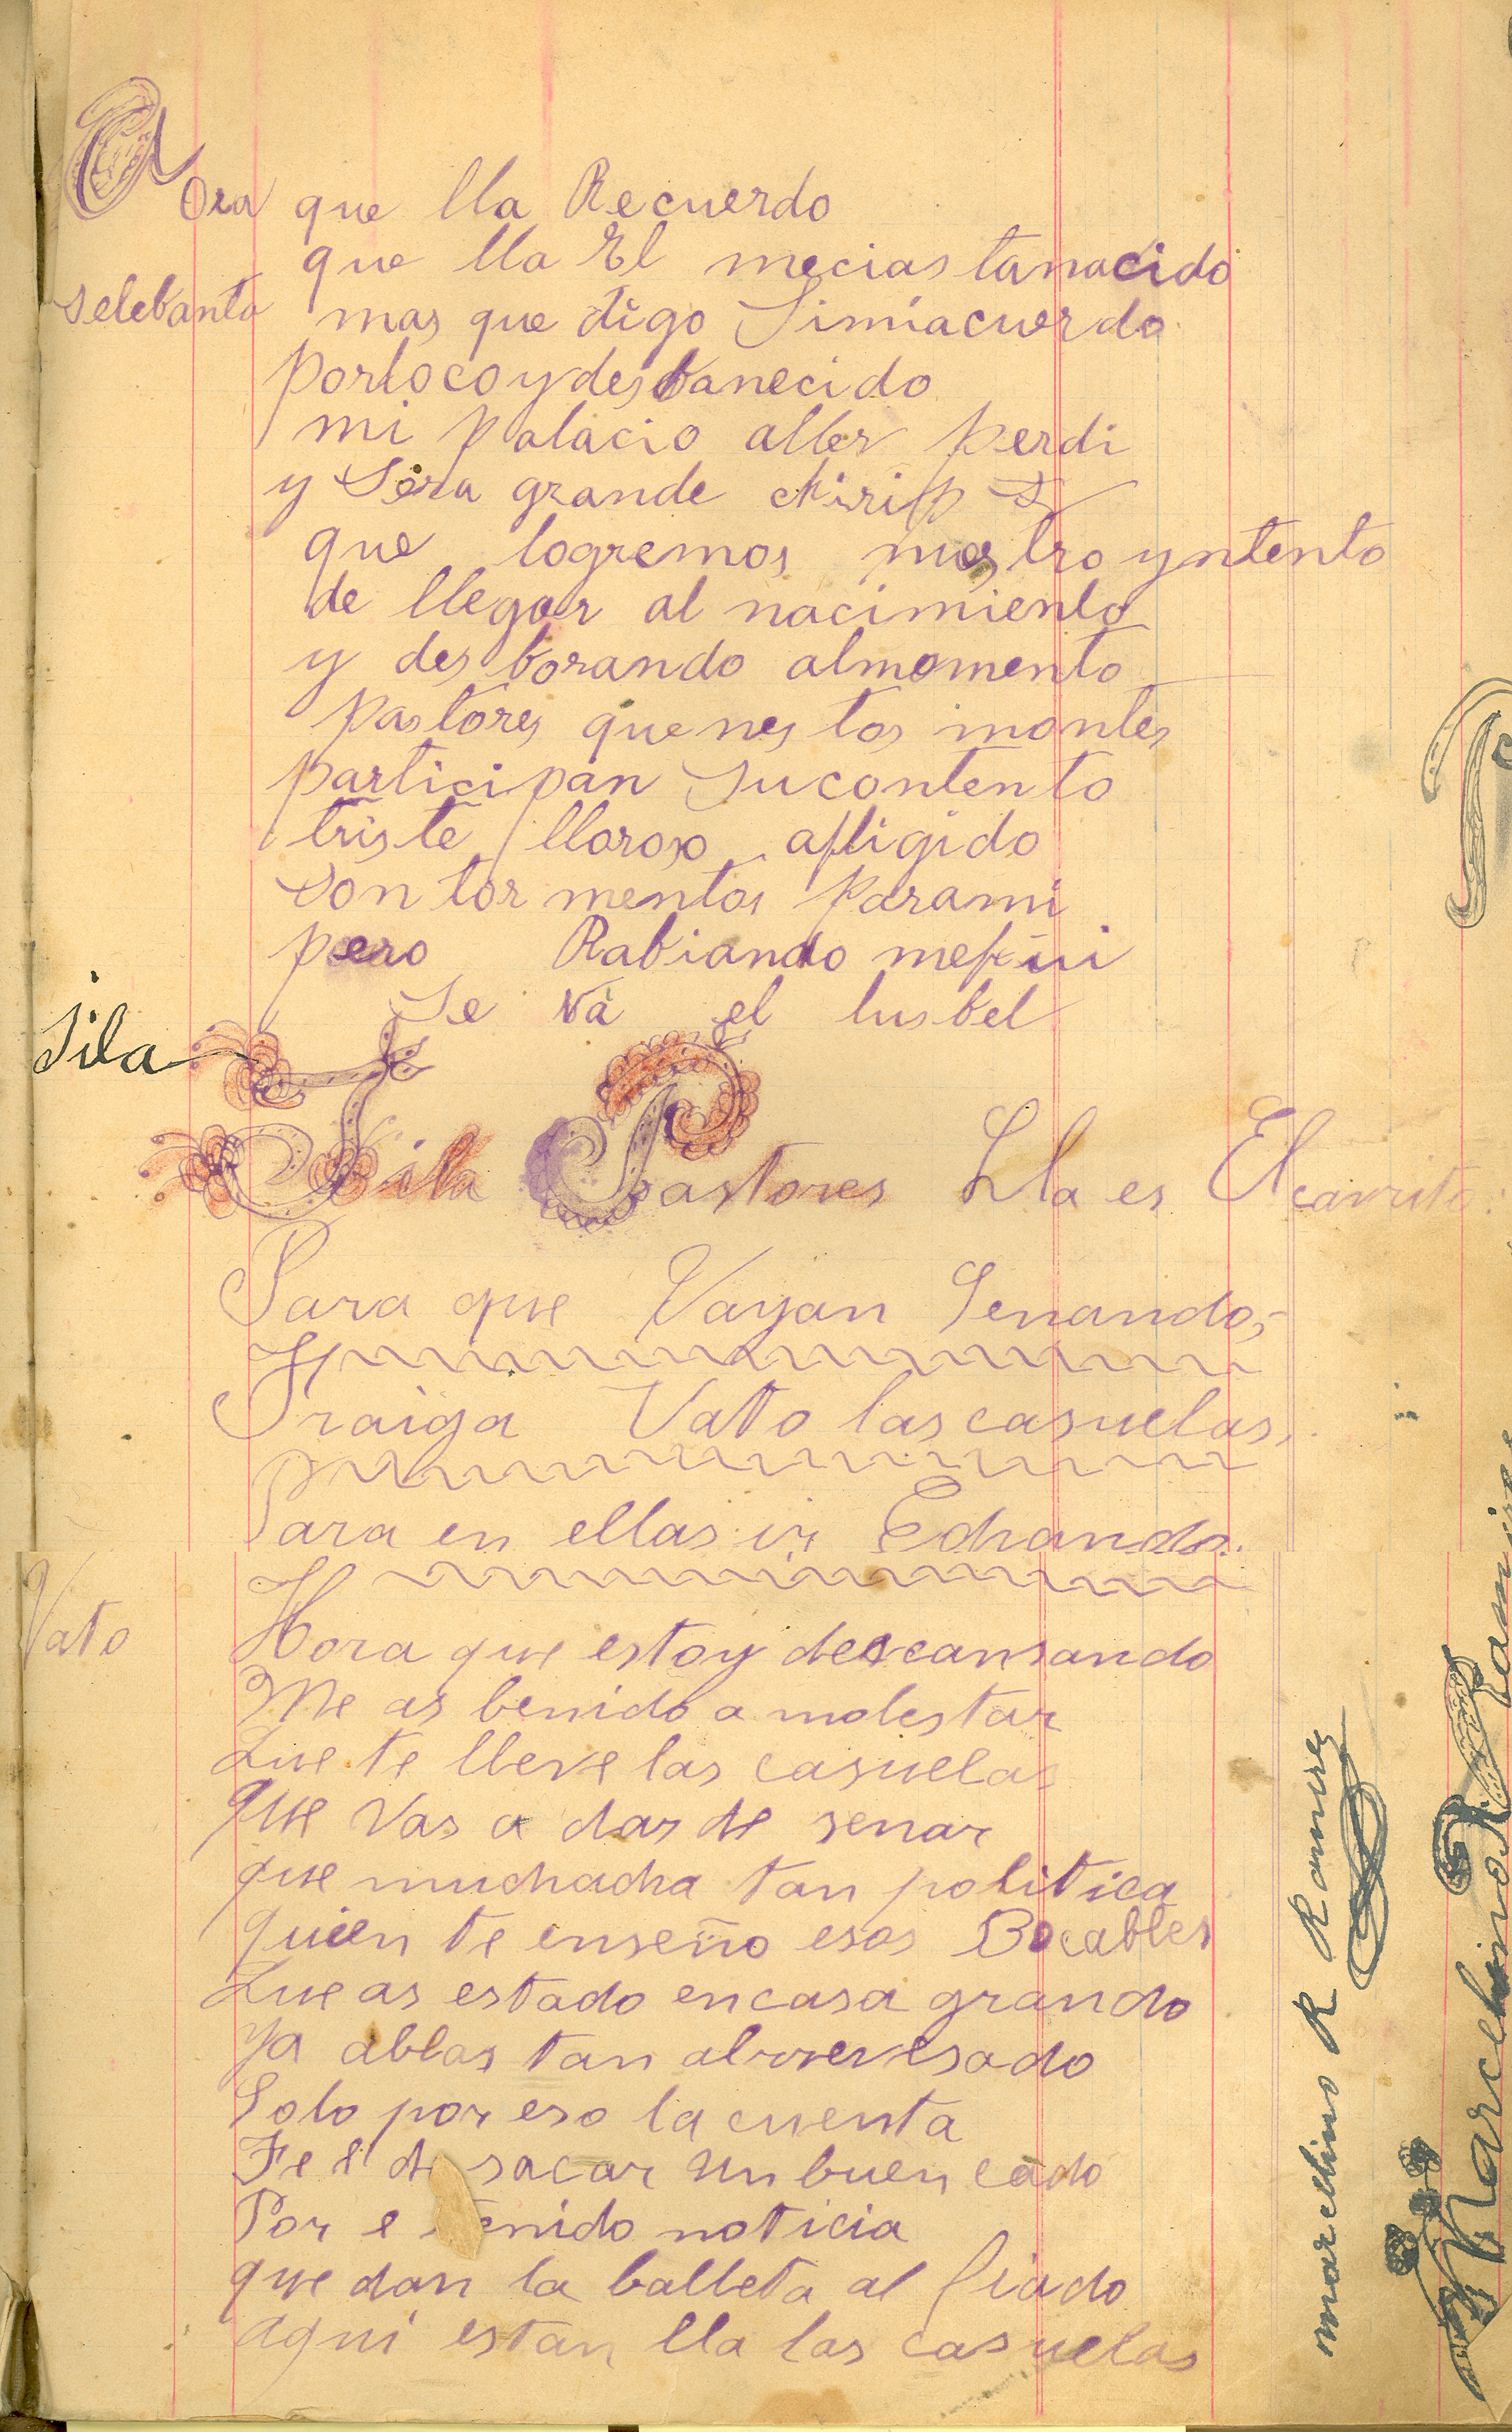 Aora que lla Recuerdo
que lla El mecias tanacido
selebanta mas que digo Simiacuerdo
porlocoydesbanecido
mi palacio aller perdi
y Sera grande chiripa
que logremos nuestro yntento
de llegar al nacimiento
y des borando almomento
pastores quenes tos montes
participan sucontento
triste lloroso afligido
son tor mentos parami
pero Rabiando mefui
Se va el lusbel
Jila
Jila Pastores Lla es El
Para que Vayan Senando,
Traiga Vato las casuelas,
Para en ellas ir Echando.
Vato Hora que estoy descansando
Me as benido a molestar
Que te lleve las casuelas
que vas a dar de senar
que muchacha tan politica
quien te enseño esos Bocables
Que as estado encasa grande
ya ablas tan alrrevesado
Solo por eso la cuenta
Te e de sacar un buen cado
Por e tenido noticia
que dan la balleta al fiado
aqui estan lla las casuelas
marcelino R Ramirez
Marcelino R. Ramirez